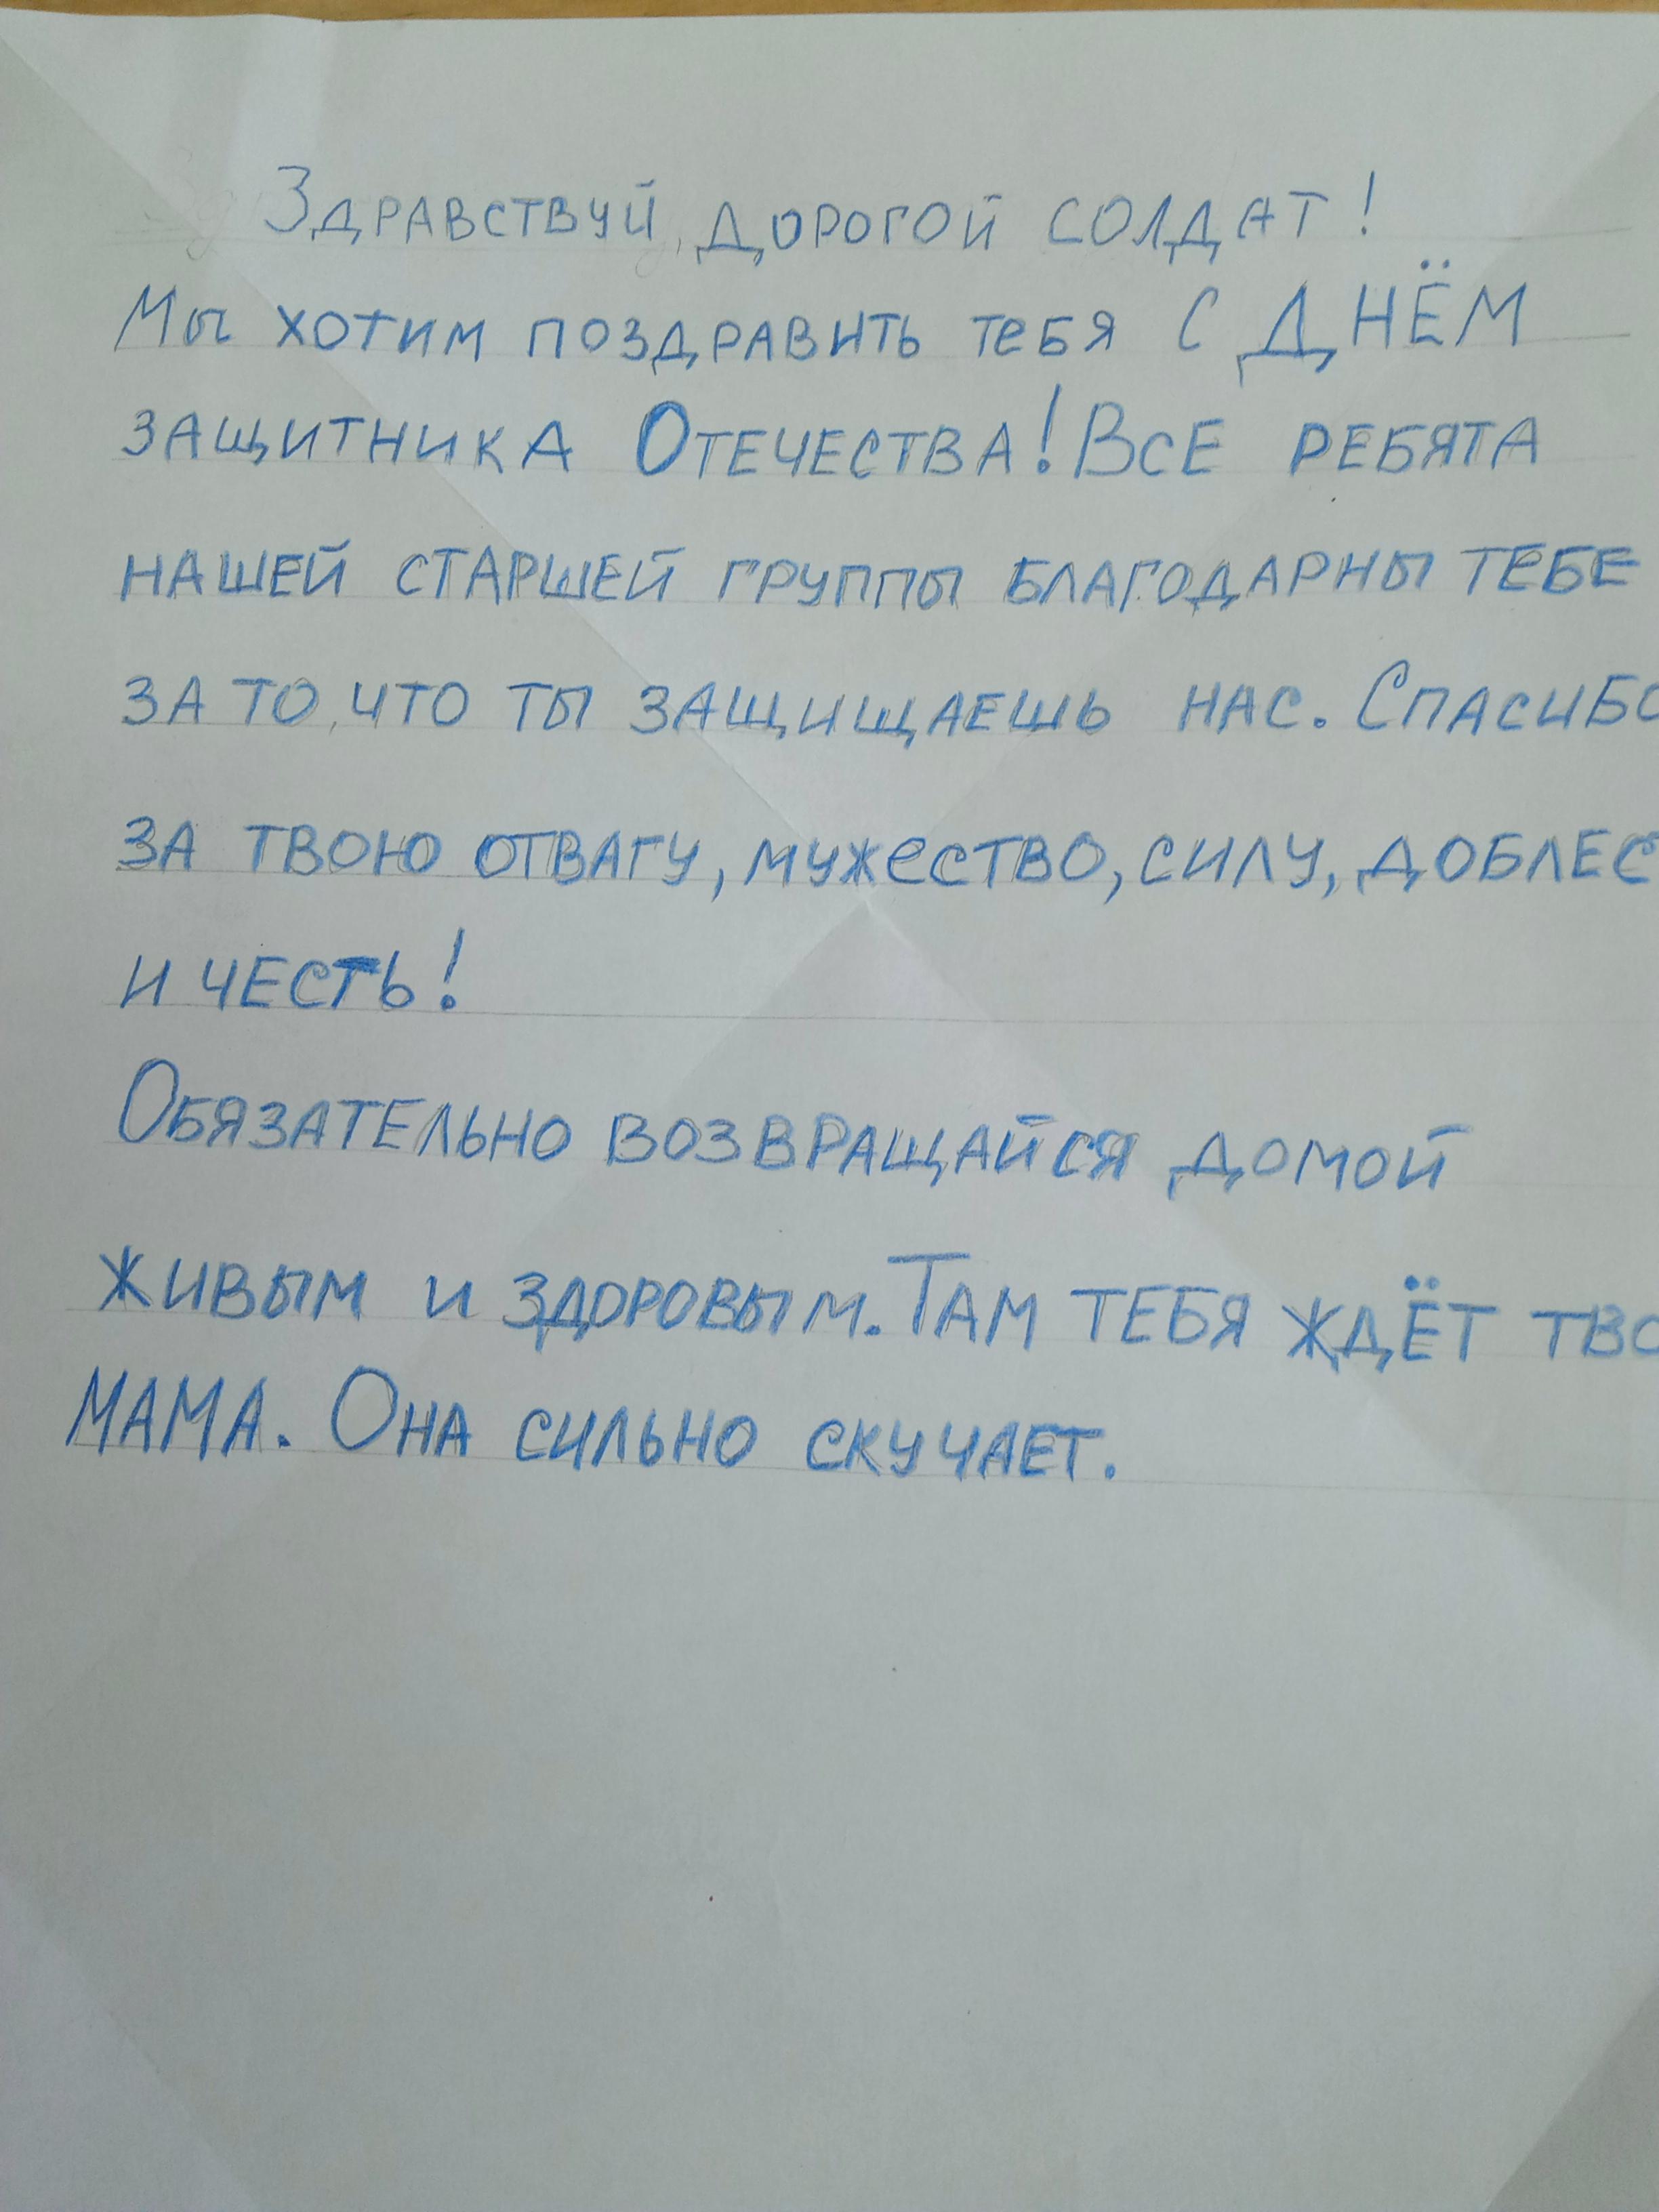 Здравствуй, дорогой солдат!
Мы хотим поздравить тебя с Днём
защитника Отечества! Все ребята
нашей старшей группы благодарны тебе
за то, что ты защищаешь нас. Спасибо
за твою отвагу, мужество, силу, доблес
и честь!
Обязательно возвращайся домой
живым и здоровым. Там тебя ждёт тво
мама. Она сильно скучает.